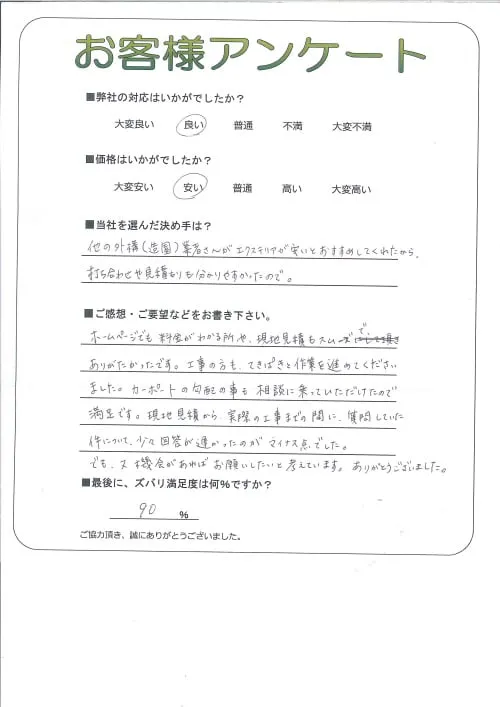 お客様アンケート
■弊社の対応はいかがでしたか？
大変良い 良い 普通 不満 大変不満
■価格はいかがでしたか？
大変安い 安い 普通 高い 大変高い
■当社を選んだ決め手は？
他の外構（造園）業者さんがエクステリアが安いとおすすめしてくれたから、
打ち合わせや見積もりも分かりやすかったので。
■ご感想・ご要望などをお書き下さい。
ホームページでも料金がわかる所や、現地見積もスムーズで
ありがたかったです。工事の方も、てきぱきと作業を進めてください
ました。カーポートの勾配の事も相談に乗っていただけたので
満足です。現地見積から、実際の工事までの間に、質問していた
件について、少々回答が遅かったのがマイナス点でした。
でも、又機会があればお願いしたいと考えています。ありがとうございました。
■最後に、ズバリ満足度は何％ですか？
90 ％
ご協力頂き、誠にありがとうございました。